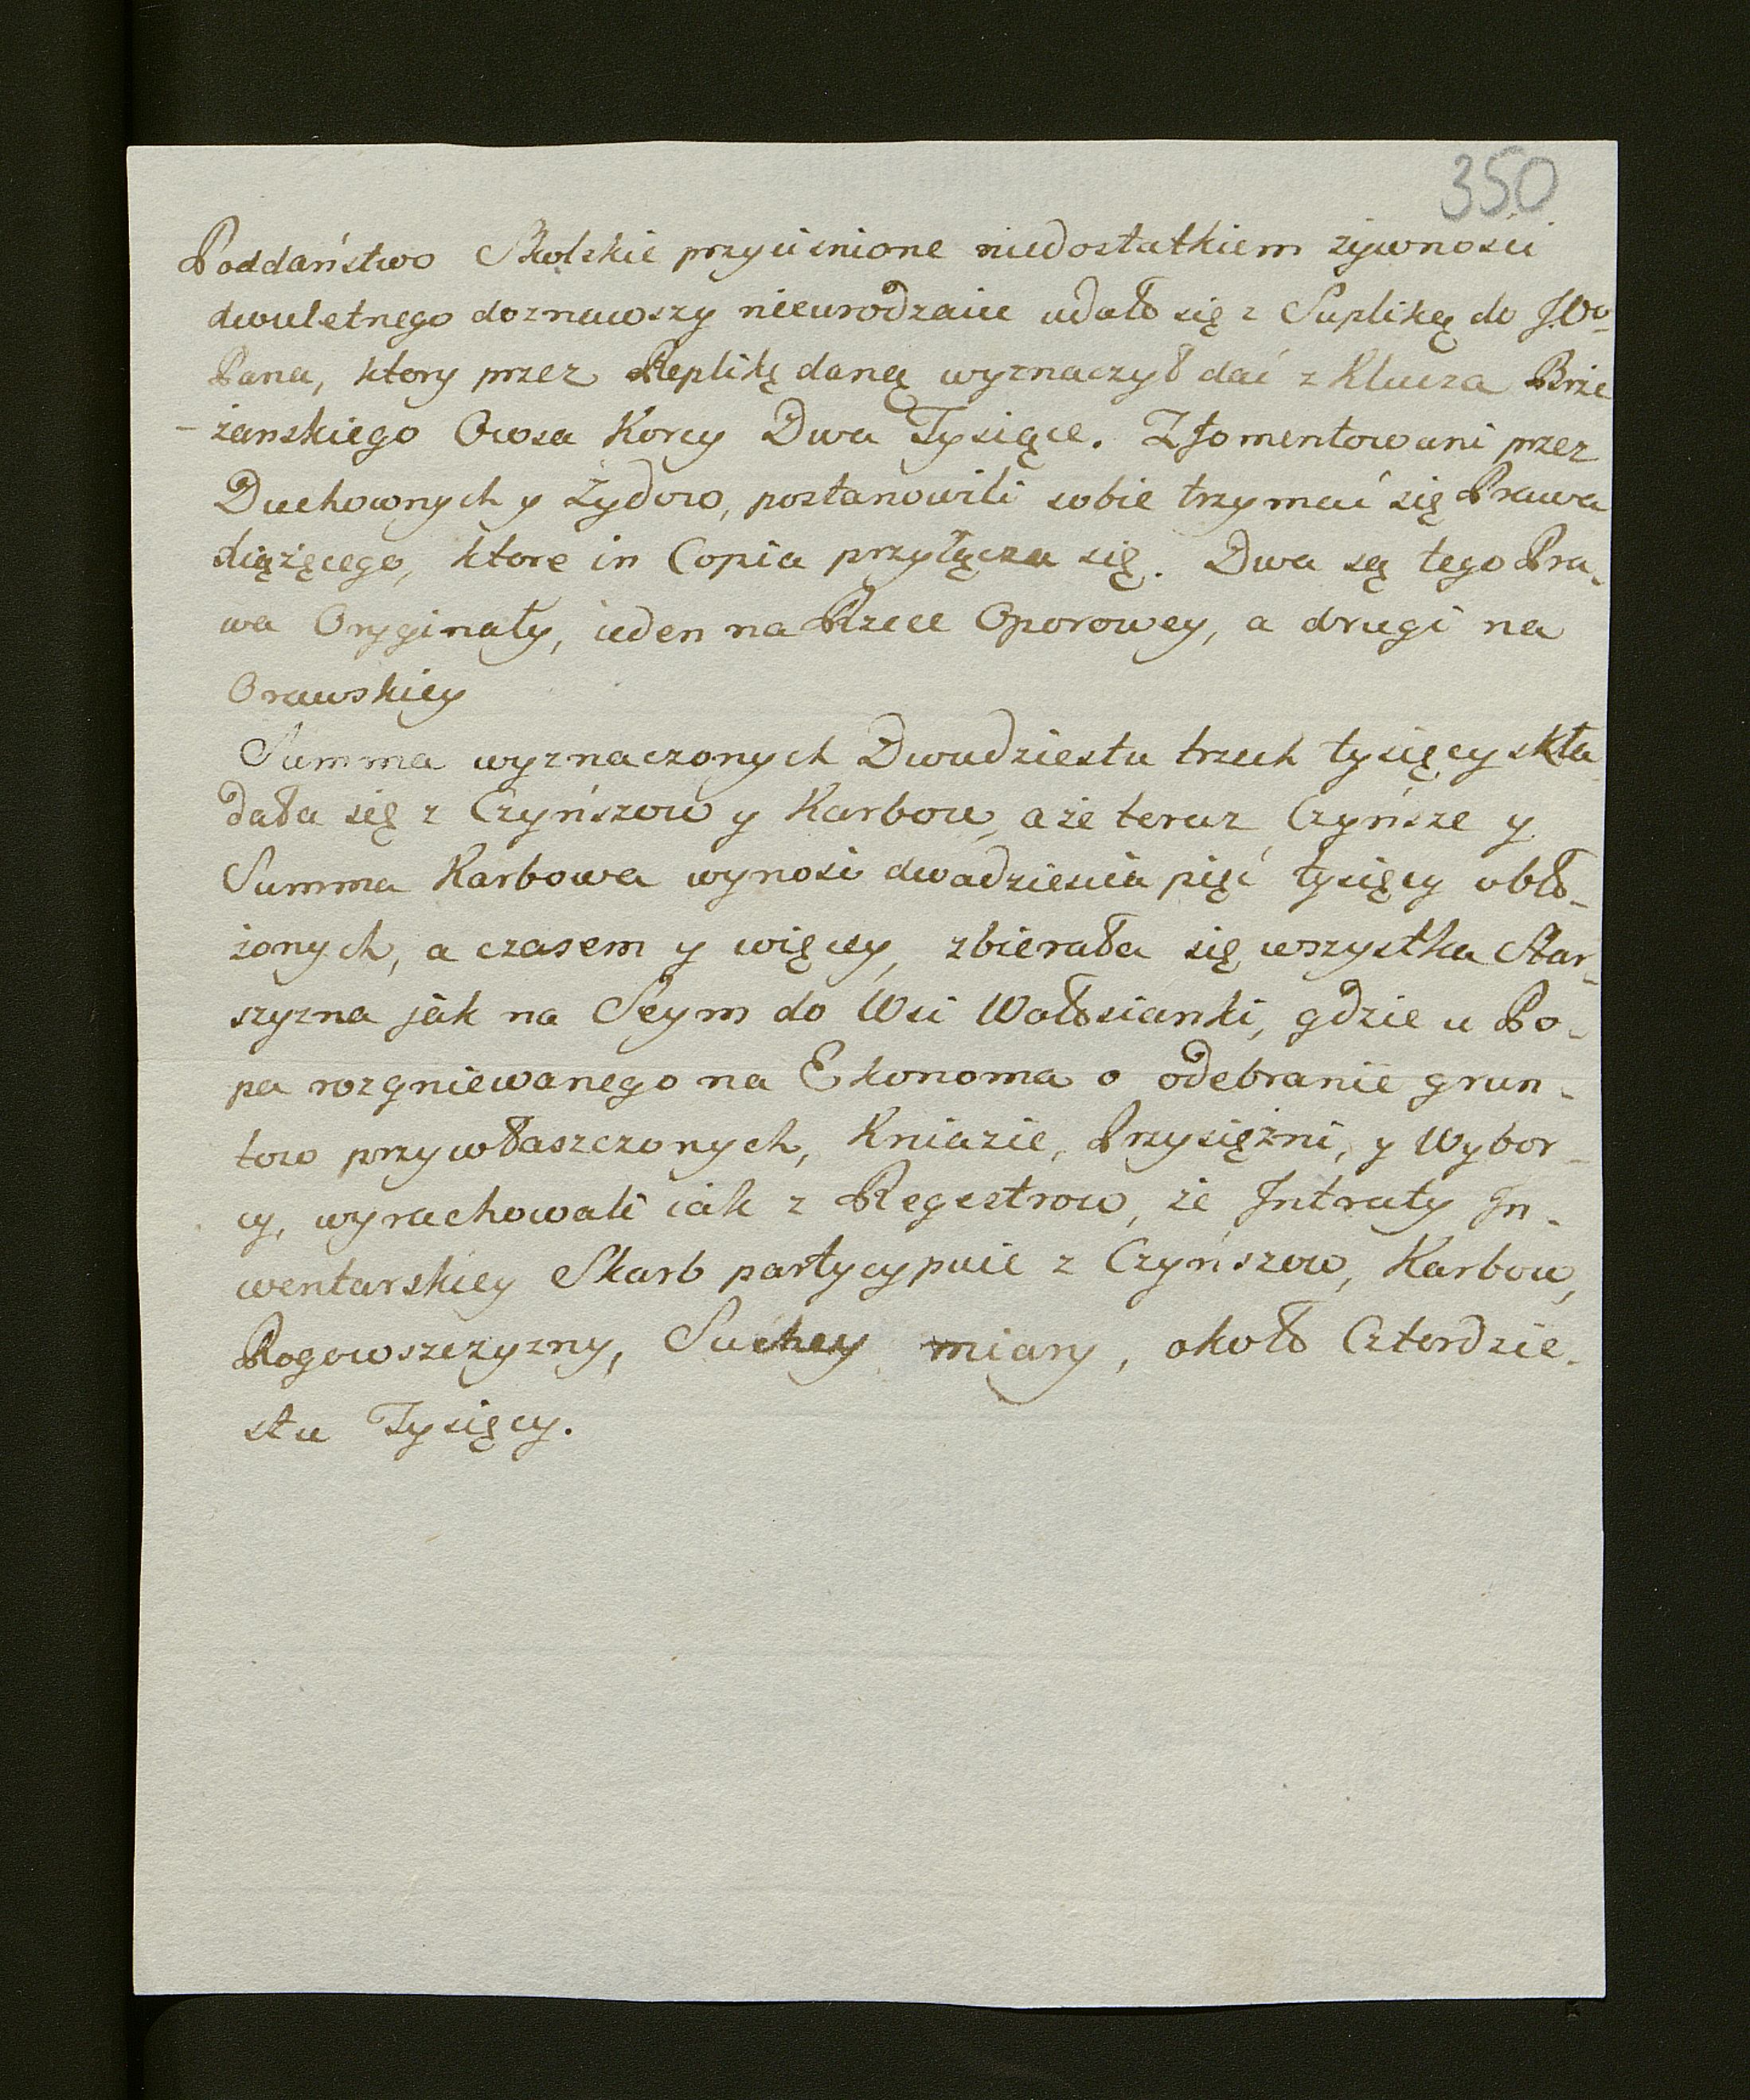 350
Poddaństwo Skolskie przyciśnione niedostatkiem żywności
dwuletnego doznawszy nieurodzaiu udało się z Supliką do JWo
Pana, ktory przez Replikę daną wyznaczył dać z Klucza Brze
-żanskiego Owsa Korcy Dwa Tysiące. Zfomentowani przez
Duchownych y Żydow, postanowili sobie trzymać się Prawa
służącego, ktore in Copia przyłącza się. Dwa są tego Pra-
wa Oryginały, ieden na Rzece Oporowey, a drugi na
Orawskiey
Summa wyznaczonych Dwudziestu trzech tysięcy skła
dała się z Czyńszow y Karbow, a że teraz Czyńsze y
Summa Karbowa wynosi dwadziescia pięć tysięcy obło-
żonych, a czasem y więcey, zbierała się wszystka Star-
szyzna jak na Seym do Wsi Wołosianki, gdzie u Po-
pa rozgniewanego na Ekonoma o odebranie grun-
tow przywłaszczonych, Kniazie, Przysiężni, y Wybor-
cy, wyrachowali iak z Regestrow, że Intraty In-
wentarskiey Skarb partycypuie z Czyńszow, Karbow,
Rogowszczyzny, Suchey miary, około Czterdzie-
stu Tysięcy.